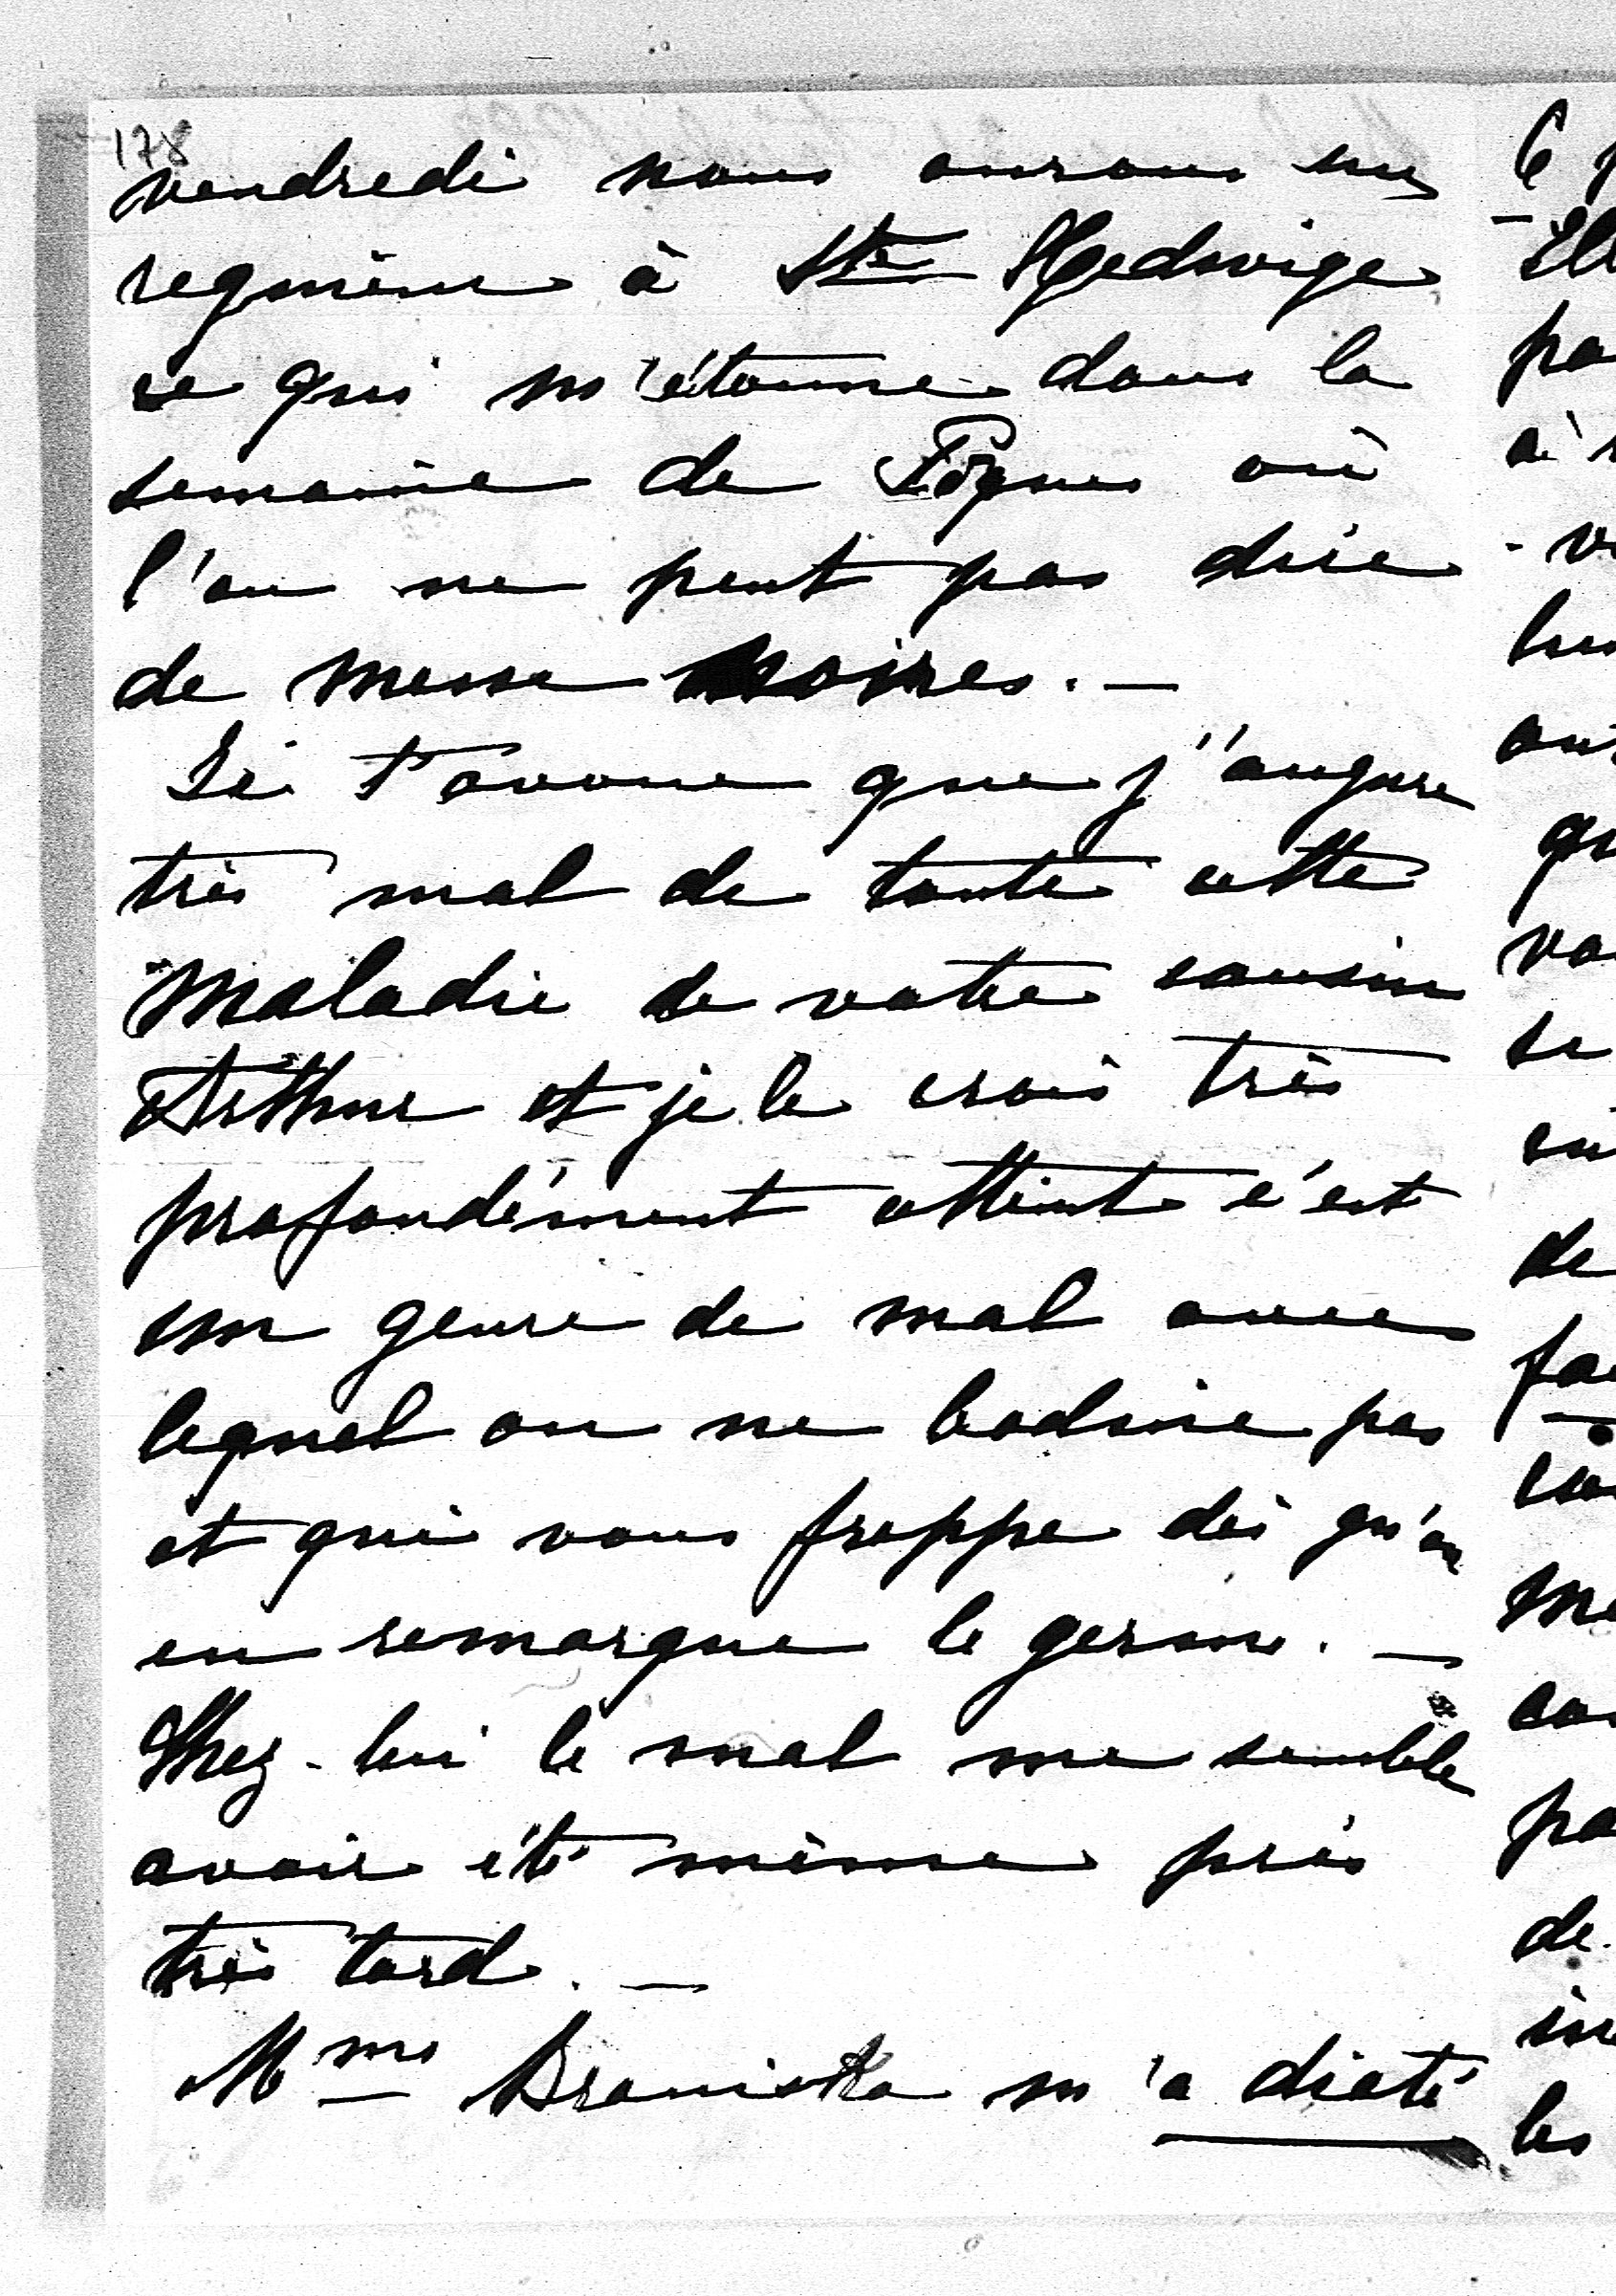 178
vendredi nous aurons un
requiem à Ste Hedwige
ce qui m'étonne dans la
semaine de Pâques où
l'on ne peut pas dire
de messe noires. —
Je t'avoue que j'augure
très mal de toute cette
maladie de votre cousin
Arthur et je le crois très
profondément atteint c'est
un genre de mal avec
lequel on ne badine pas
et qui vous frappe dès qu'on
en remarque le germe. —
Chez-lui le mal me semble
avoir été même pris
très tard. —
Mme Braniska m'a dicté